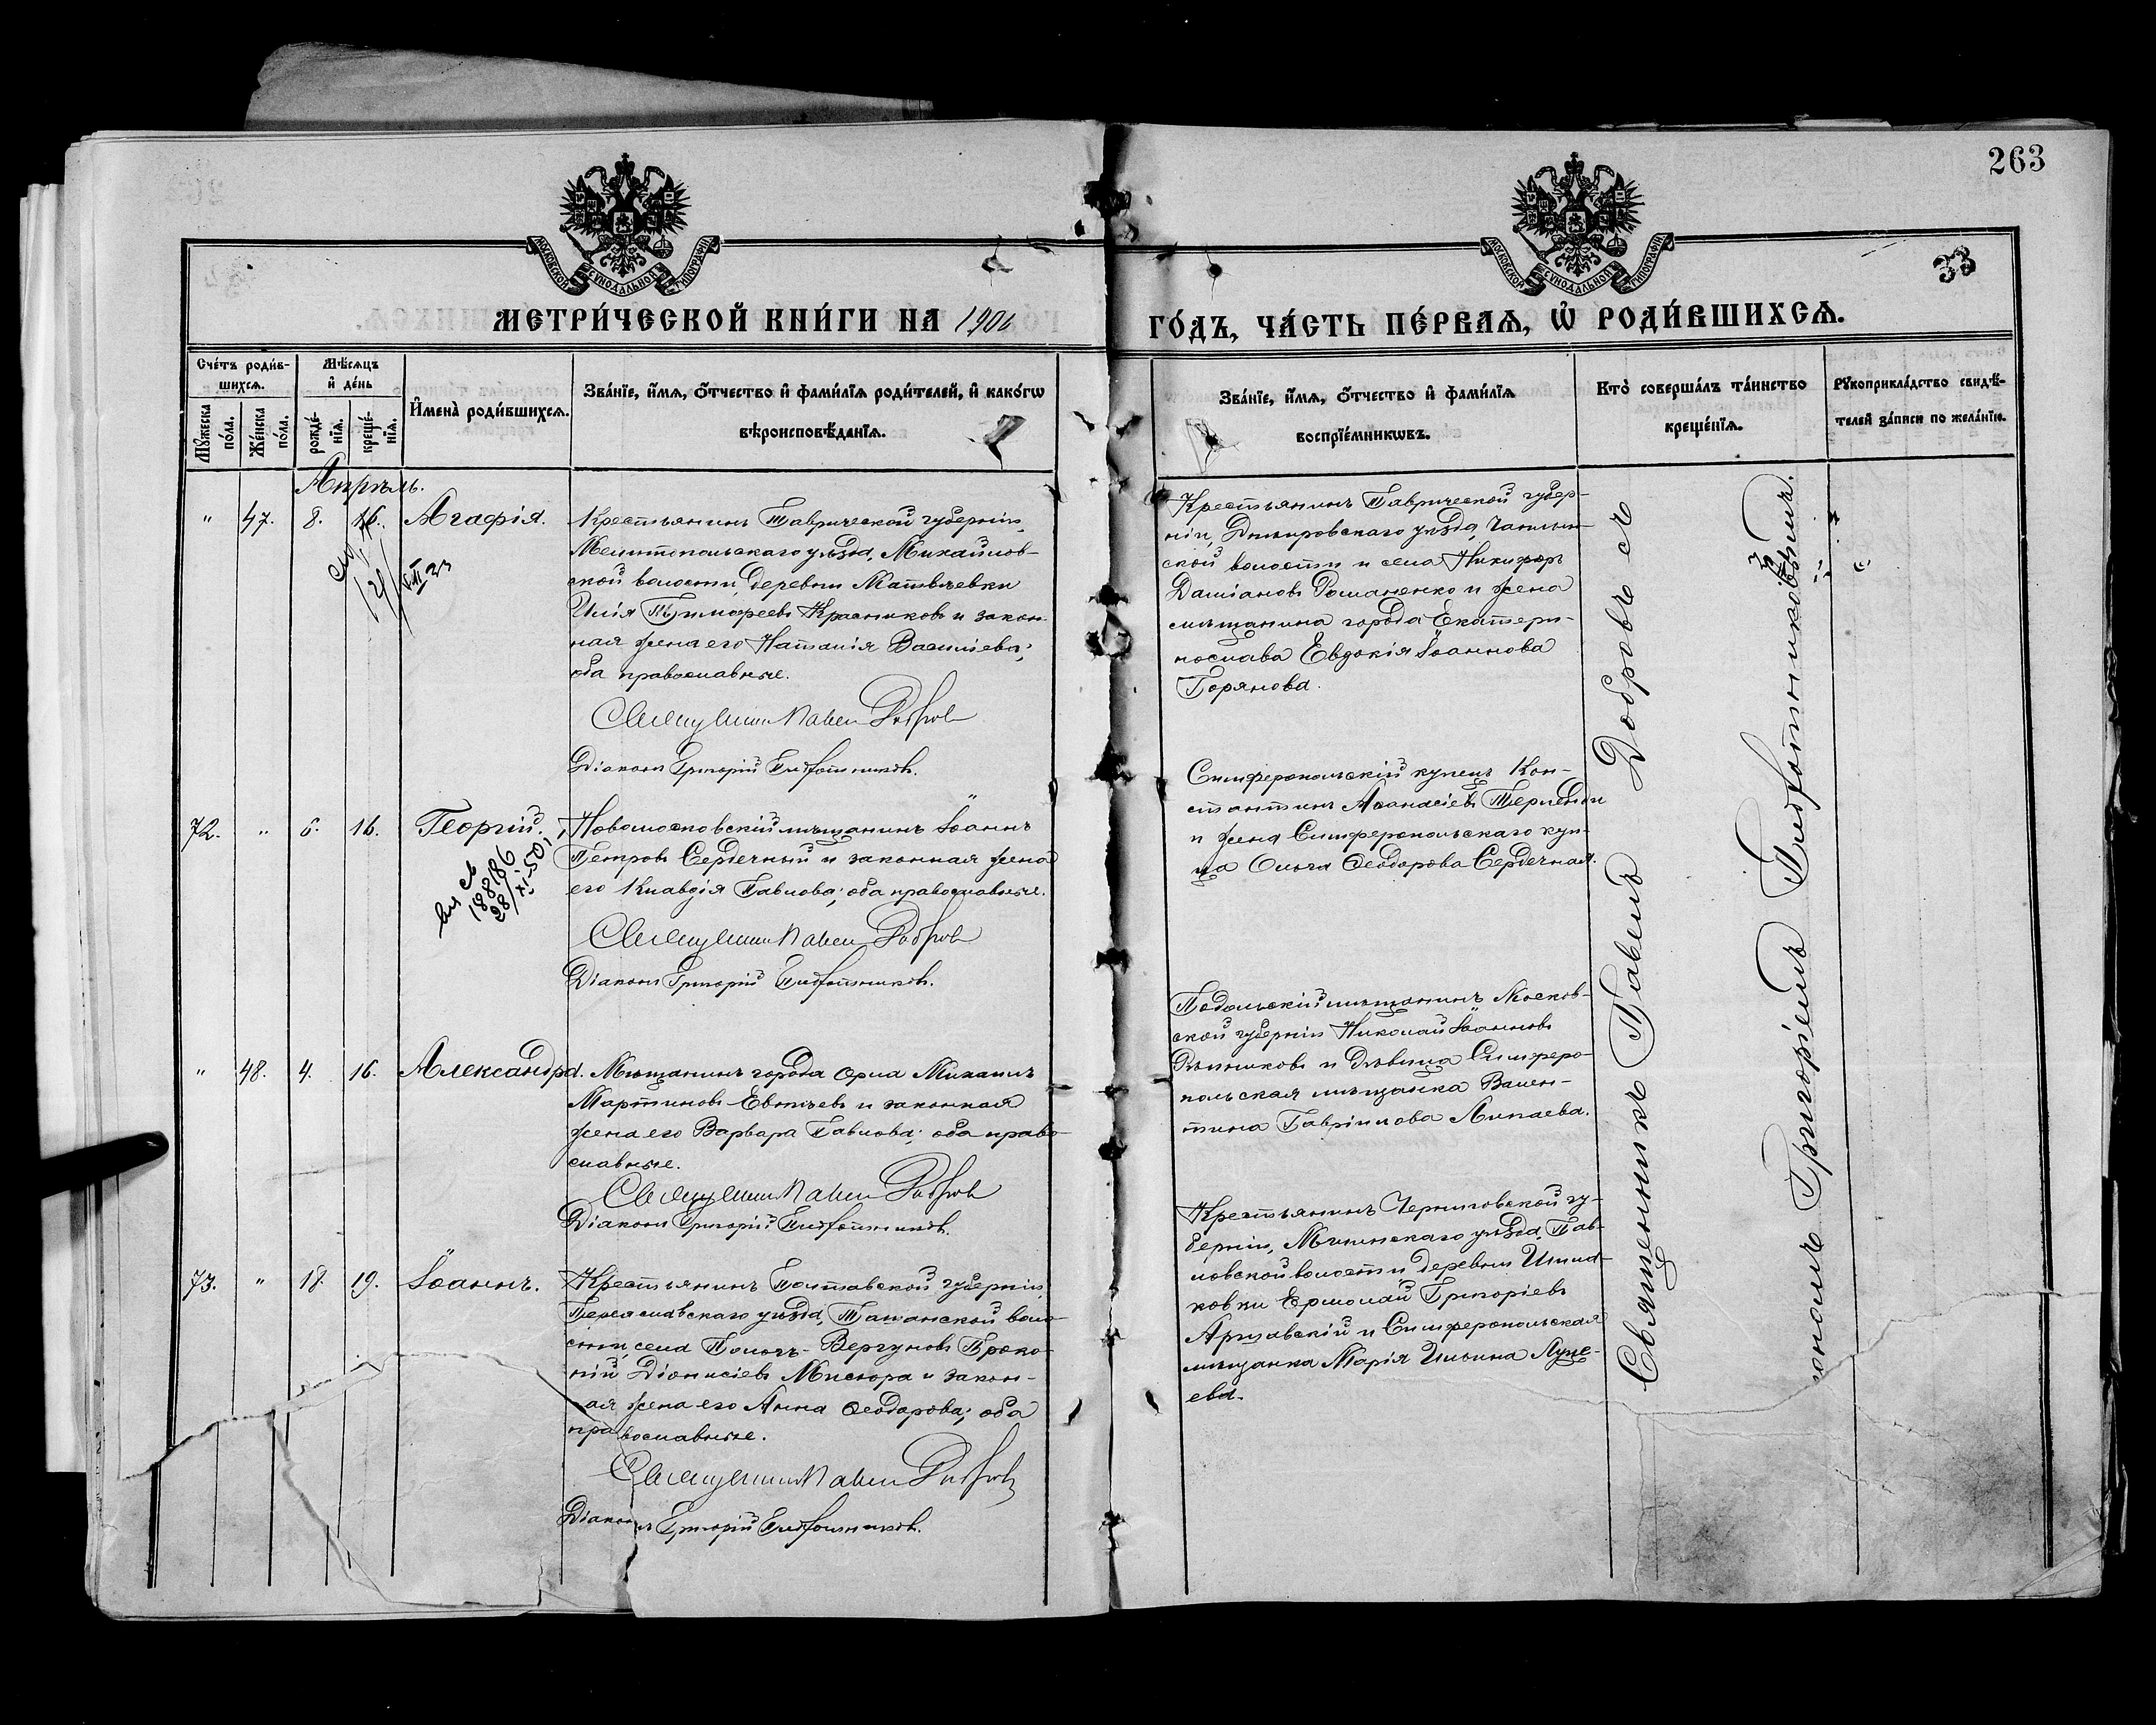 263
33
МОСКОВСКОЙ СѴНОДАЛЬНОЙ ТИПОГРАФІИ
МОСКОВСКОЙ СѴНОДАЛЬНОЙ ТИПОГРАФІИ
МЕТРИ́ЧЕСКОЙ КНИ́ГИ НА 190
ГО́ДЪ, ЧА́СТЬ ПЕ́РВАѦ, Ѡ҆ РОДИ́ВШИХСѦ.
Сче́тъ роди́в-
шихсѧ.
Мꙋ́жеска по́ла.
Же́нска по́ла.
Мѣ́сѧцъ и҆ де́нь
рожде́-нїѧ.
креще́-нїѧ.
И҆мена̀ роди́вшихсѧ.
Зва́нїе, и҆́мѧ, ѻ҆́тчество и҆ фамі́лїѧ роди́телей, и҆ како́гѡ
вѣроисповѣ́данїѧ.
Зва́нїе, и҆́мѧ, ѻ҆́тчество и҆ фамі́лїѧ
воспрїе́мникѡвъ.
Кто̀ соверша́лъ та́инство
креще́нїѧ.
Рꙋкоприкла́дство свидѣ́-
телей за́писи по жела́нїю.
Апрѣль.
" 47. 8. 16. Агафія.
Крестьянинъ Таврической губерніи,
Мелитопольскаго уѣзда, Михайлов-
ской волости, деревни Матвѣевки
Илія Тимофеевъ Красниковъ и закон-
ная жена его Наталія Васильева;
оба православные.
Священникъ Павелъ Добровъ
Діаконъ Григорій
Крестьянинъ Таврической губер-
ніи, Днѣпровскаго уѣзда, Чаплин-
ской волости и села Никифоръ
Даміановъ Романенко и жена
мѣщанина города Екатери-
нослава Евдокія Іоаннова
Горянова.
72. " 6. 16. Георгій.
18886
28/XI-50
Новомосковскій мѣщанинъ Іоаннъ
Петровъ Сердечный и законная жена
его Клавдія Павлова; оба православные.
Священникъ Павелъ Добровъ
Діаконъ Григорій
Симферопольскій купецъ Кон-
стантинъ Аѳанасіевъ
и жена Симферопольскаго куп-
ца Ольга Ѳеодорова Сердечная.
" 48. 4. 16. Александра.
Мѣщанинъ города Орла Михаилъ
Мартиновъ Евтѣевъ и законная
жена его Варвара Павлова; оба право-
славные.
Священникъ Павелъ Добровъ
Діаконъ Григорій
Подольскій мѣщанинъ Москов-
ской губерніи Николай Іоанновъ
и дѣвица Симферо-
польская мѣщанка Вален-
тина Гавріилова Липаева.
73. " 18. 19. Іоаннъ.
Крестьянинъ Полтавской губерніи,
Переяславскаго уѣзда, Ташанской воло-
сти, села Помокъ-
Діонисіевъ Мисюра и закон-
ая жена его Анна Ѳеодорова; оба
православные.
Священникъ Павелъ Добровъ
Діаконъ Григорій
Крестьянинъ Черниговской гу-
берніи, Мглинскаго уѣзда, Пав-
ловской волости деревни
Ермолай Григоріевъ
и Симферопольская
мѣщанка Марія Ильина Луце-
ева.
Священникъ Павелъ Добровъ съ
Григоріемъ